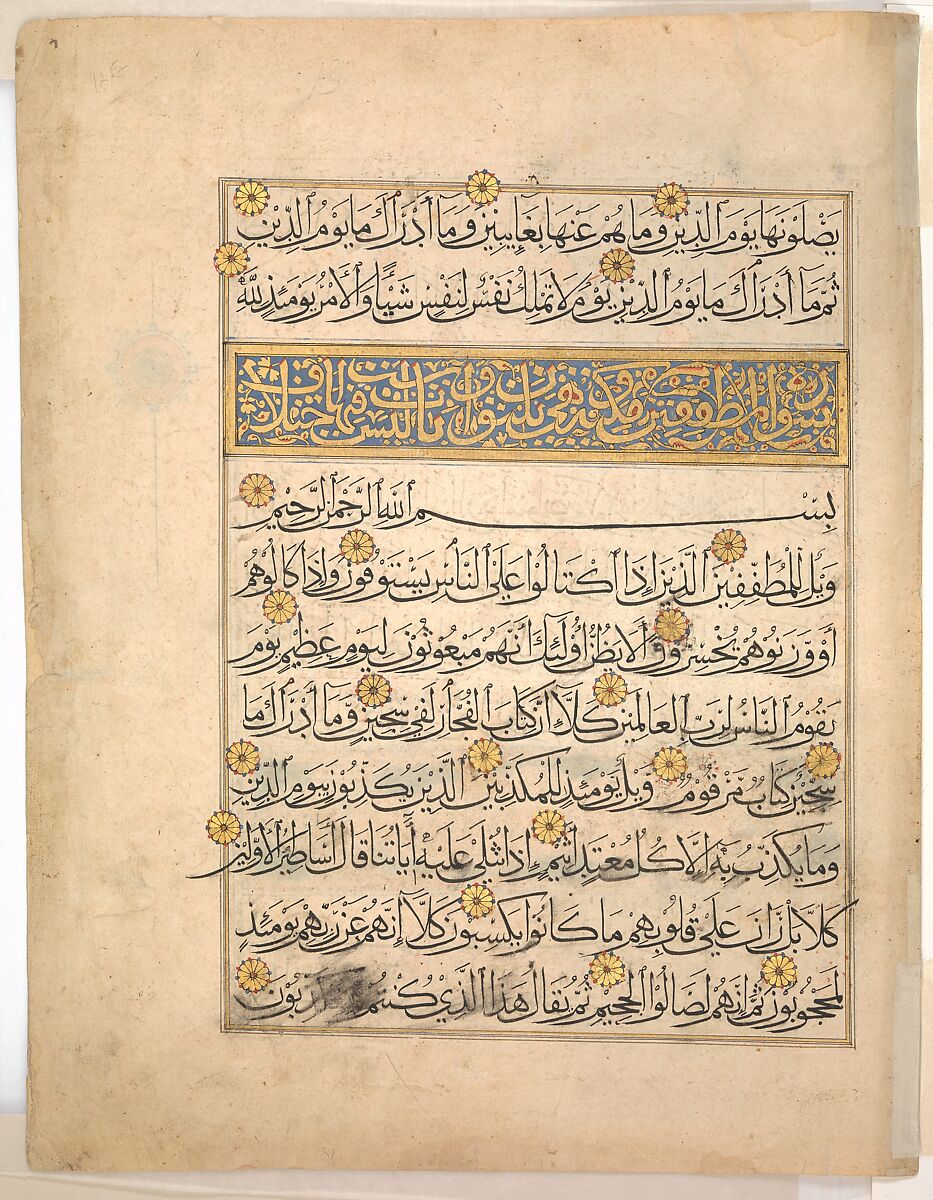 يَصْلَوْنَهَا يَوْمَ ٱلدِّينِ وَمَا هُمْ عَنْهَا بِغَآئِبِينَ وَمَآ أَدْرَاكَ مَا يَوْمُ ٱلدِّينِ
ثُمَّ مَآ أَدْرَاكَ مَا يَوْمُ ٱلدِّينِ يَوْمُ لَا تَمْلِكُ نَفْسٌ لِنَفْسٍ شَيْئًا وَٱلْأَمْرُ يَوْمَئِذٍ لِلَّهِ
سورة المطففين مكية وهي ثلثون وست ايات ليس فيها اختلاف
بِسْمِ ٱللَّهِ ٱلرَّحْمَنِ ٱلرَّحِيمِ
وَيْلٌ لِلْمُطَفِّفِينَ ٱلَّذِينَ إِذَا ٱكْتَالُوا عَلَى ٱلنَّاسِ يَسْتَوْفُونَ وَإِذَا كَالُوهُمْ
أَوْ وَزَنُوهُمْ يُخْسِرُونَ أَلَا يَظُنُّ أُولَئِكَ أَنَّهُمْ مَبْعُوثُونَ لِيَوْمٍ عَظِيمٍ يَوْمَ
يَقُومُ ٱلنَّاسُ لِرَبِّ ٱلْعَالَمِينَ كَلَّآ إِنَّ كِتَابَ ٱلْفُجَّارِ لَفِي سِجِّينٍ وَمَآ أَدْرَاكَ مَا
سِجِّينٌ كِتَابٌ مَرْقُومٌ وَيْلٌ يَوْمَئِذٍ لِلْمُكَذِّبِينَ ٱلَّذِينَ يُكَذِّبُونَ بِيَوْمِ ٱلدِّينِ
وَمَا يُكَذِّبُ بِهِ إِلَّا كُلُّ مُعْتَدٍ أَثِيمٍ إِذَا تُتْلَى عَلَيْهِ آيَاتُنَا قَالَ أَسَاطِيرُ ٱلْأَوَّلِينَ
كَلَّا بَلْ رَانَ عَلَى قُلُوبِهِمْ مَا كَانُوا يَكْسِبُونَ كَلَّآ إِنَّهُمْ عَنْ رَبِّهِمْ يَوْمَئِذٍ
لَمَحْجُوبُونَ ثُمَّ إِنَّهُمْ لَصَالُوا ٱلْجَحِيمِ ثُمَّ يُقَالُ هَذَا ٱلَّذِي كُنْتُمْ بِهِ تُكَذِّبُونَ